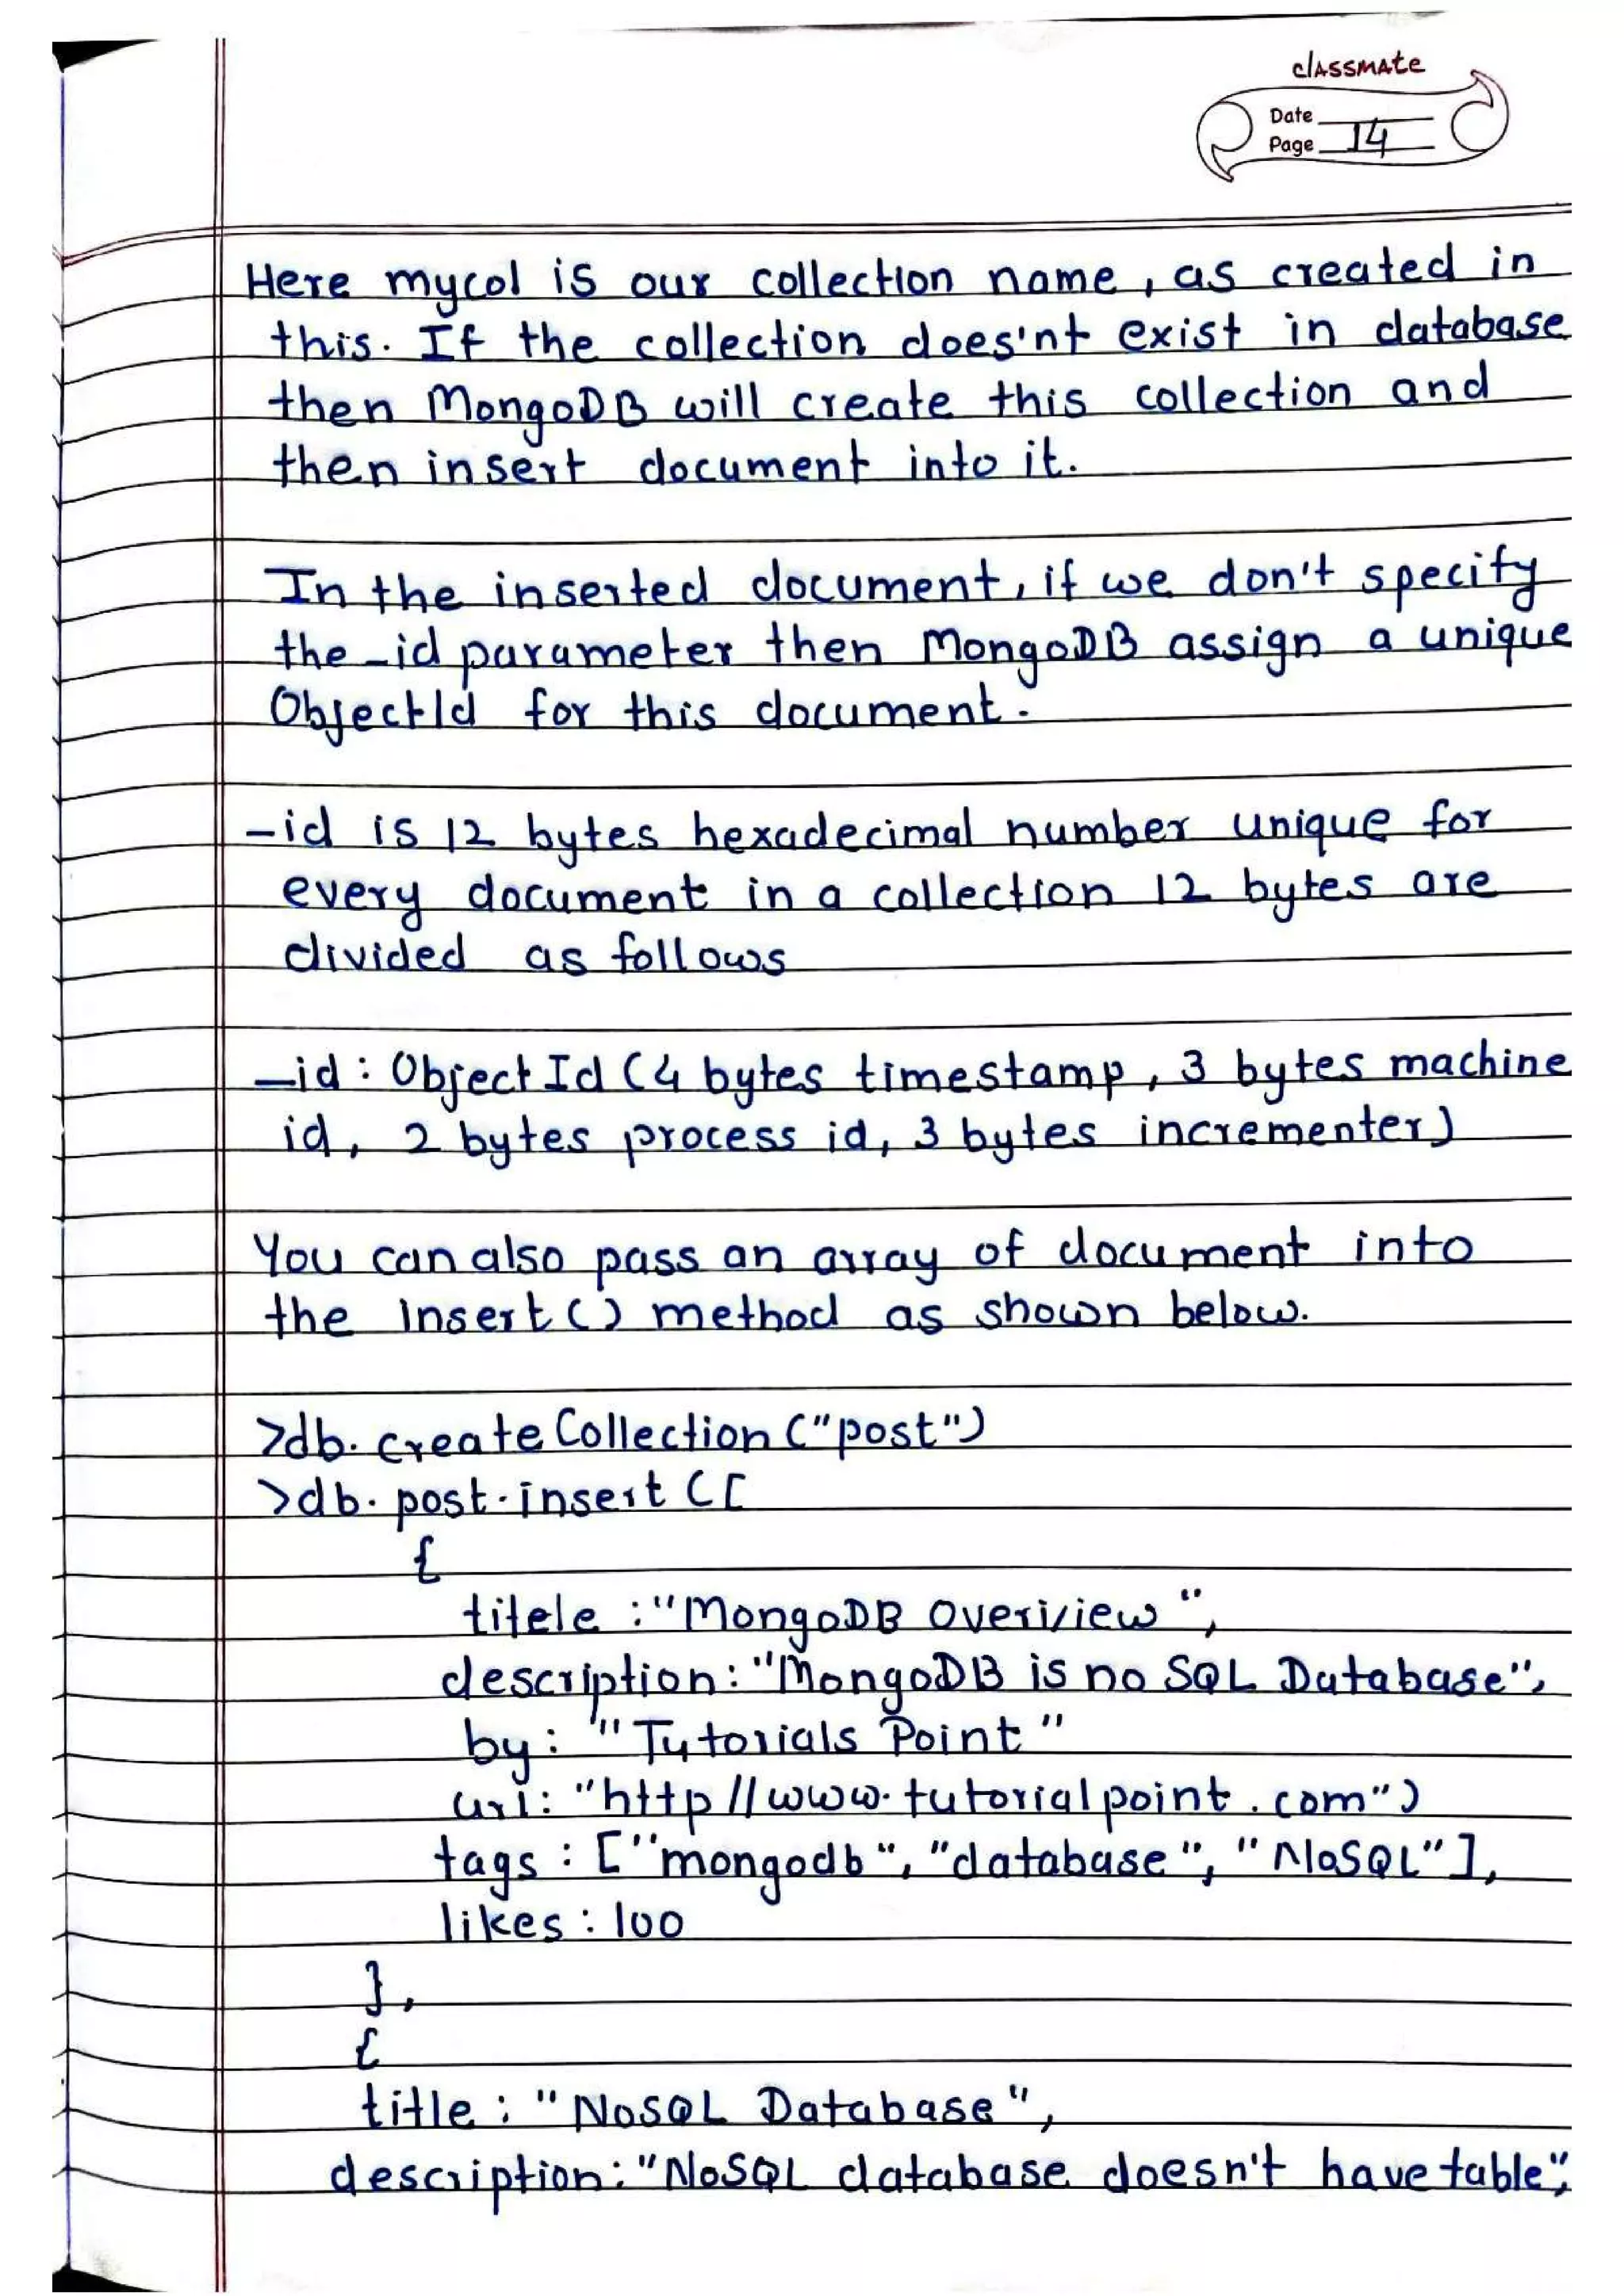 classmate
Date
Page 14
Here mycol is our collection name, as created in
this. If the collection does'nt exist in database
then MongoDB will create this collection and
then insert document into it.
In the inserted document, if we don't specify
the _id parameter then MongoDB assign a unique
ObjectId for this document.
_id is 12 bytes hexadecimal number unique for
every document in a collection 12 bytes are
divided as follows
_id : Object Id (4 bytes timestamp, 3 bytes machine
id, 2 bytes process id, 3 bytes incrementer)
You can also pass an array of document into
the insert () method as shown below.
>db. create Collection ("post")
>db. post. insert ([
{
titele : "MongoDB Overiview",
description: "MongoDB is no SQL Database",
by: "Tutorials Point"
url: "http //www. tutorialpoint .com")
tags : ["mongodb", "database", "NoSQL"],
likes : 100
},
{
title : "NoSQL Database",
description: "NoSQL database doesn't have table",